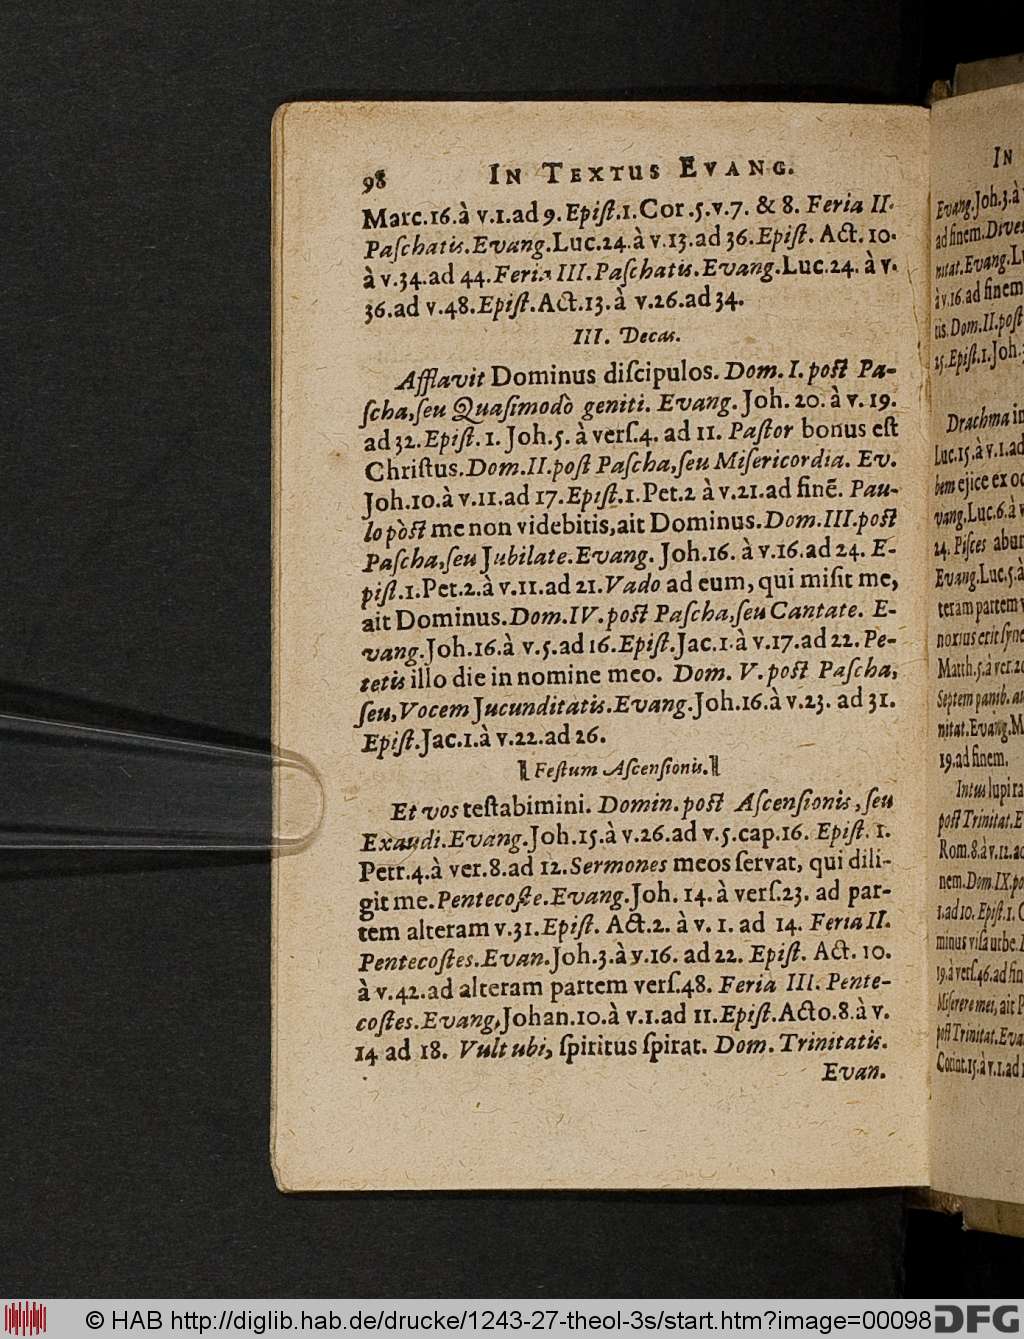 98 IN TEXTUS EVANG.
Marc.16.à v.1.ad 9.Epiſt.1.Cor.5.v.7. & 8. Feria II.
Paſchatis.Evang.Luc.24.à v.13.ad 36.Epiſt. Act. 10.
à v.34.ad 44.Feria III.Paſchatis.Evang.Luc.24. à v.
36.ad v.48.Epiſt.Act.13.à v.26.ad 34.
III. Decas.
Afflavit Dominus diſcipulos. Dom. I. poſt Pa-
ſcha,ſeu Quaſimodò geniti. Evang. Joh. 20. à v. 19.
ad 32.Epiſt. 1. Joh.5. à verſ.4. ad 11. Paſtor bonus eſt
Chriſtus.Dom.II.poſt Paſcha,ſeu Miſericordia. Ev.
Joh.10.à v.11.ad 17.Epiſt.1.Pet.2 à v.21.ad finē. Pau-
lo pòſt me non videbitis,ait Dominus.Dom.III.poſt
Paſcha,ſeu Jubilate.Evang. Joh.16. à v.16.ad 24. E-
piſt.1.Pet.2.à v.11.ad 21.Vado ad eum, qui miſit me,
ait Dominus.Dom.IV.poſt Paſcha,ſeu Cantate. E-
vang.Joh.16.à v.5.ad 16.Epiſt.Jac.1.à v.17.ad 22. Pe-
tetis illo die in nomine meo. Dom. V. poſt Paſcha,
ſeu,Vocem Jucunditatis.Evang.Joh.16.à v.23. ad 31.
Epiſt.Jac.1.à v.22.ad 26.
Feſtum Aſcenſionis.
Et vos teſtabimini. Domin. poſt Aſcenſionis, ſeu
Exaudi.Evang.Joh.15.à v.26.ad v.5.cap.16. Epiſt. 1.
Petr.4.à ver.8.ad 12.Sermones meos ſervat, qui dili-
git me.Pentecoſte.Evang.Joh. 14.à verſ.23. ad par-
tem alteram v.31.Epiſt. Act.2. à v. 1. ad 14. Feria II.
Pentecoſtes.Evan.Joh.3.à v.16. ad 22. Epiſt. Act. 10.
à v.42.ad alteram partem verſ.48. Feria III. Pente-
coſtes.Evang,Johan.10.à v.1.ad 11.Epiſt.Acto.8.à v.
14 ad 18. Vult ubi, ſpiritus ſpirat. Dom. Trinitatis.
Evan.
IN
Evang.Joh.3.à
ad finem.
nitat.Evang.
à v.16.ad finem
tis.Dom.II.poſt
25.Epiſt.1.Joh.
Drachma
Luc.15.à v.1.ad
bem ejice ex
vang.Luc.6.à
24. Piſces
Evang.Luc.5.à
teram partem
noxius erit
Matth.5.à ver.
Septem panib.
nitat.Evang.
19.ad finem.
Intus lupi
poſt Trinitat.
Rom.8.à v.12.
nem.Dom.IX.
1.ad 10. Epiſt.1.
minus viſa urbe.
19.à verſ.46.ad
Miſerere mei, ait
poſt Trinitat.
Corint.15.à v.1.ad
© HAB http://diglib.hab.de/drucke/1243-27-theol-3s/start.htm?image=00098 DFG